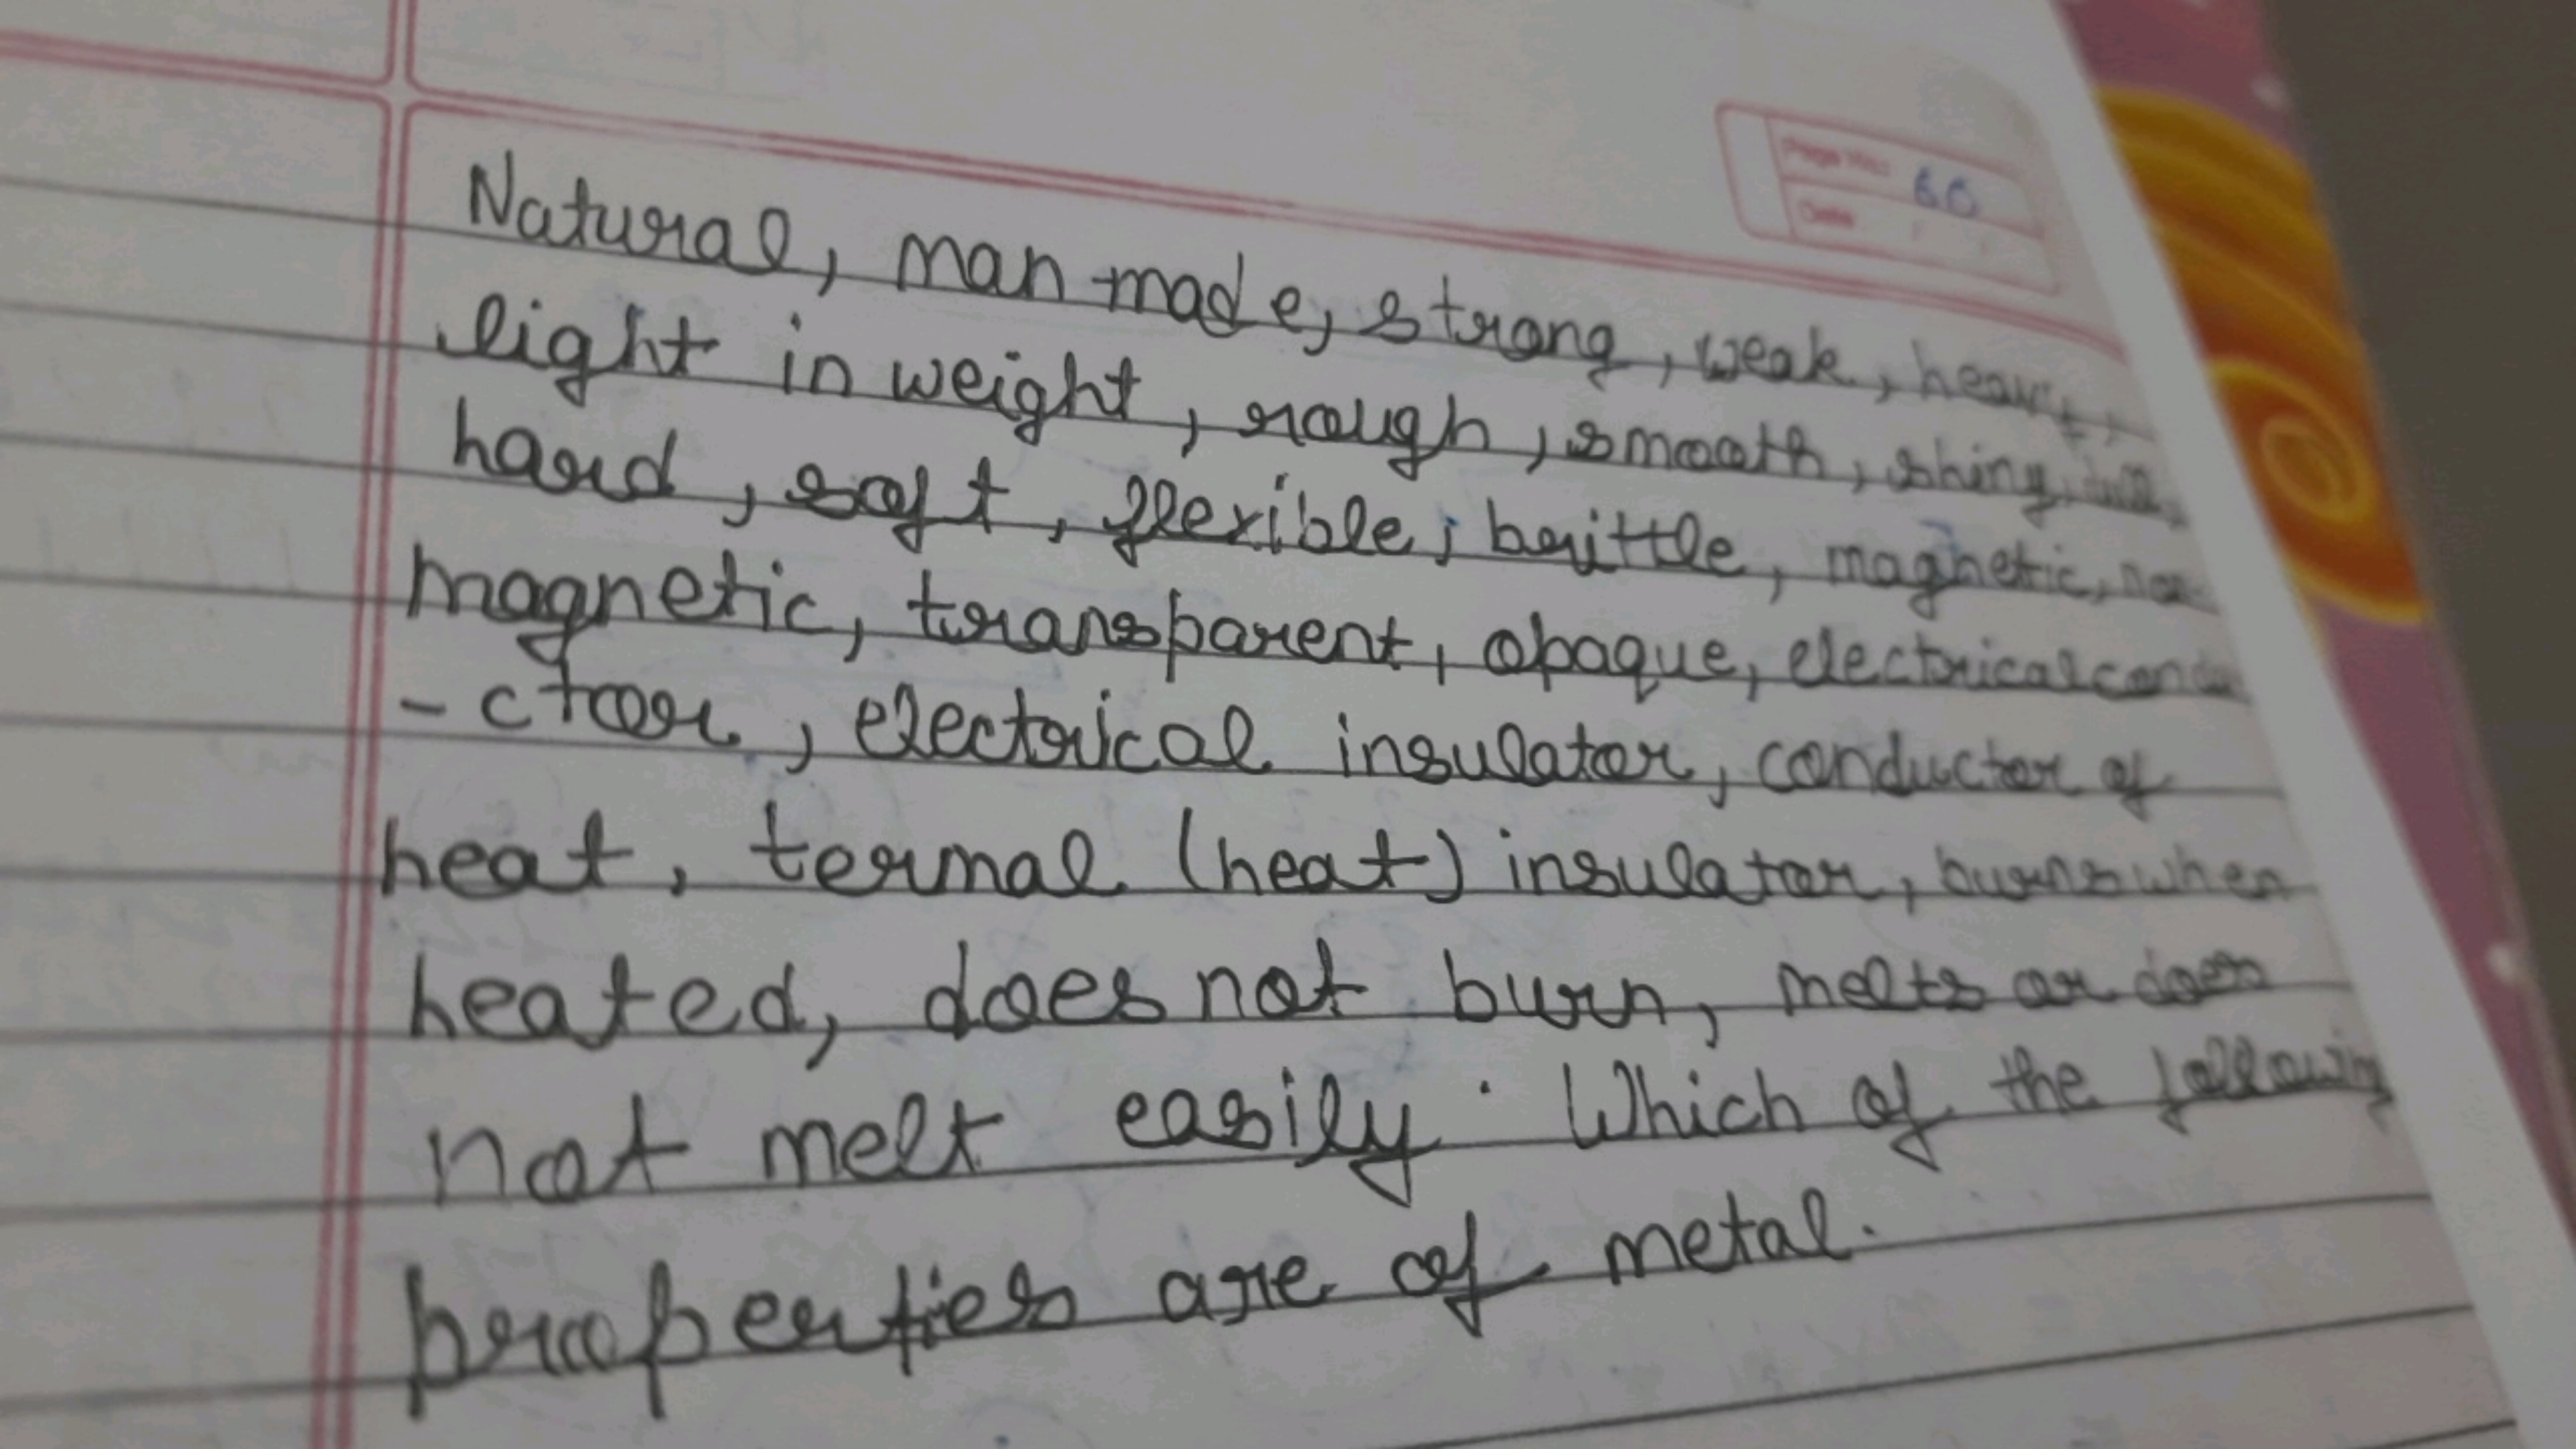 Page No.: 60
Date
Natural, man made, strong, weak, heavy,
light in weight, rough, smooth, shiny,
hard, soft, flexible, brittle, magnetic, non
magnetic, transparent, opaque, electrical condu
-ctoor, electrical insulator, conductor of
heat, termal (heat) insulator, burns when
heated, does not burn, melts or does
not melt easily. Which of the following
properties are of metal.